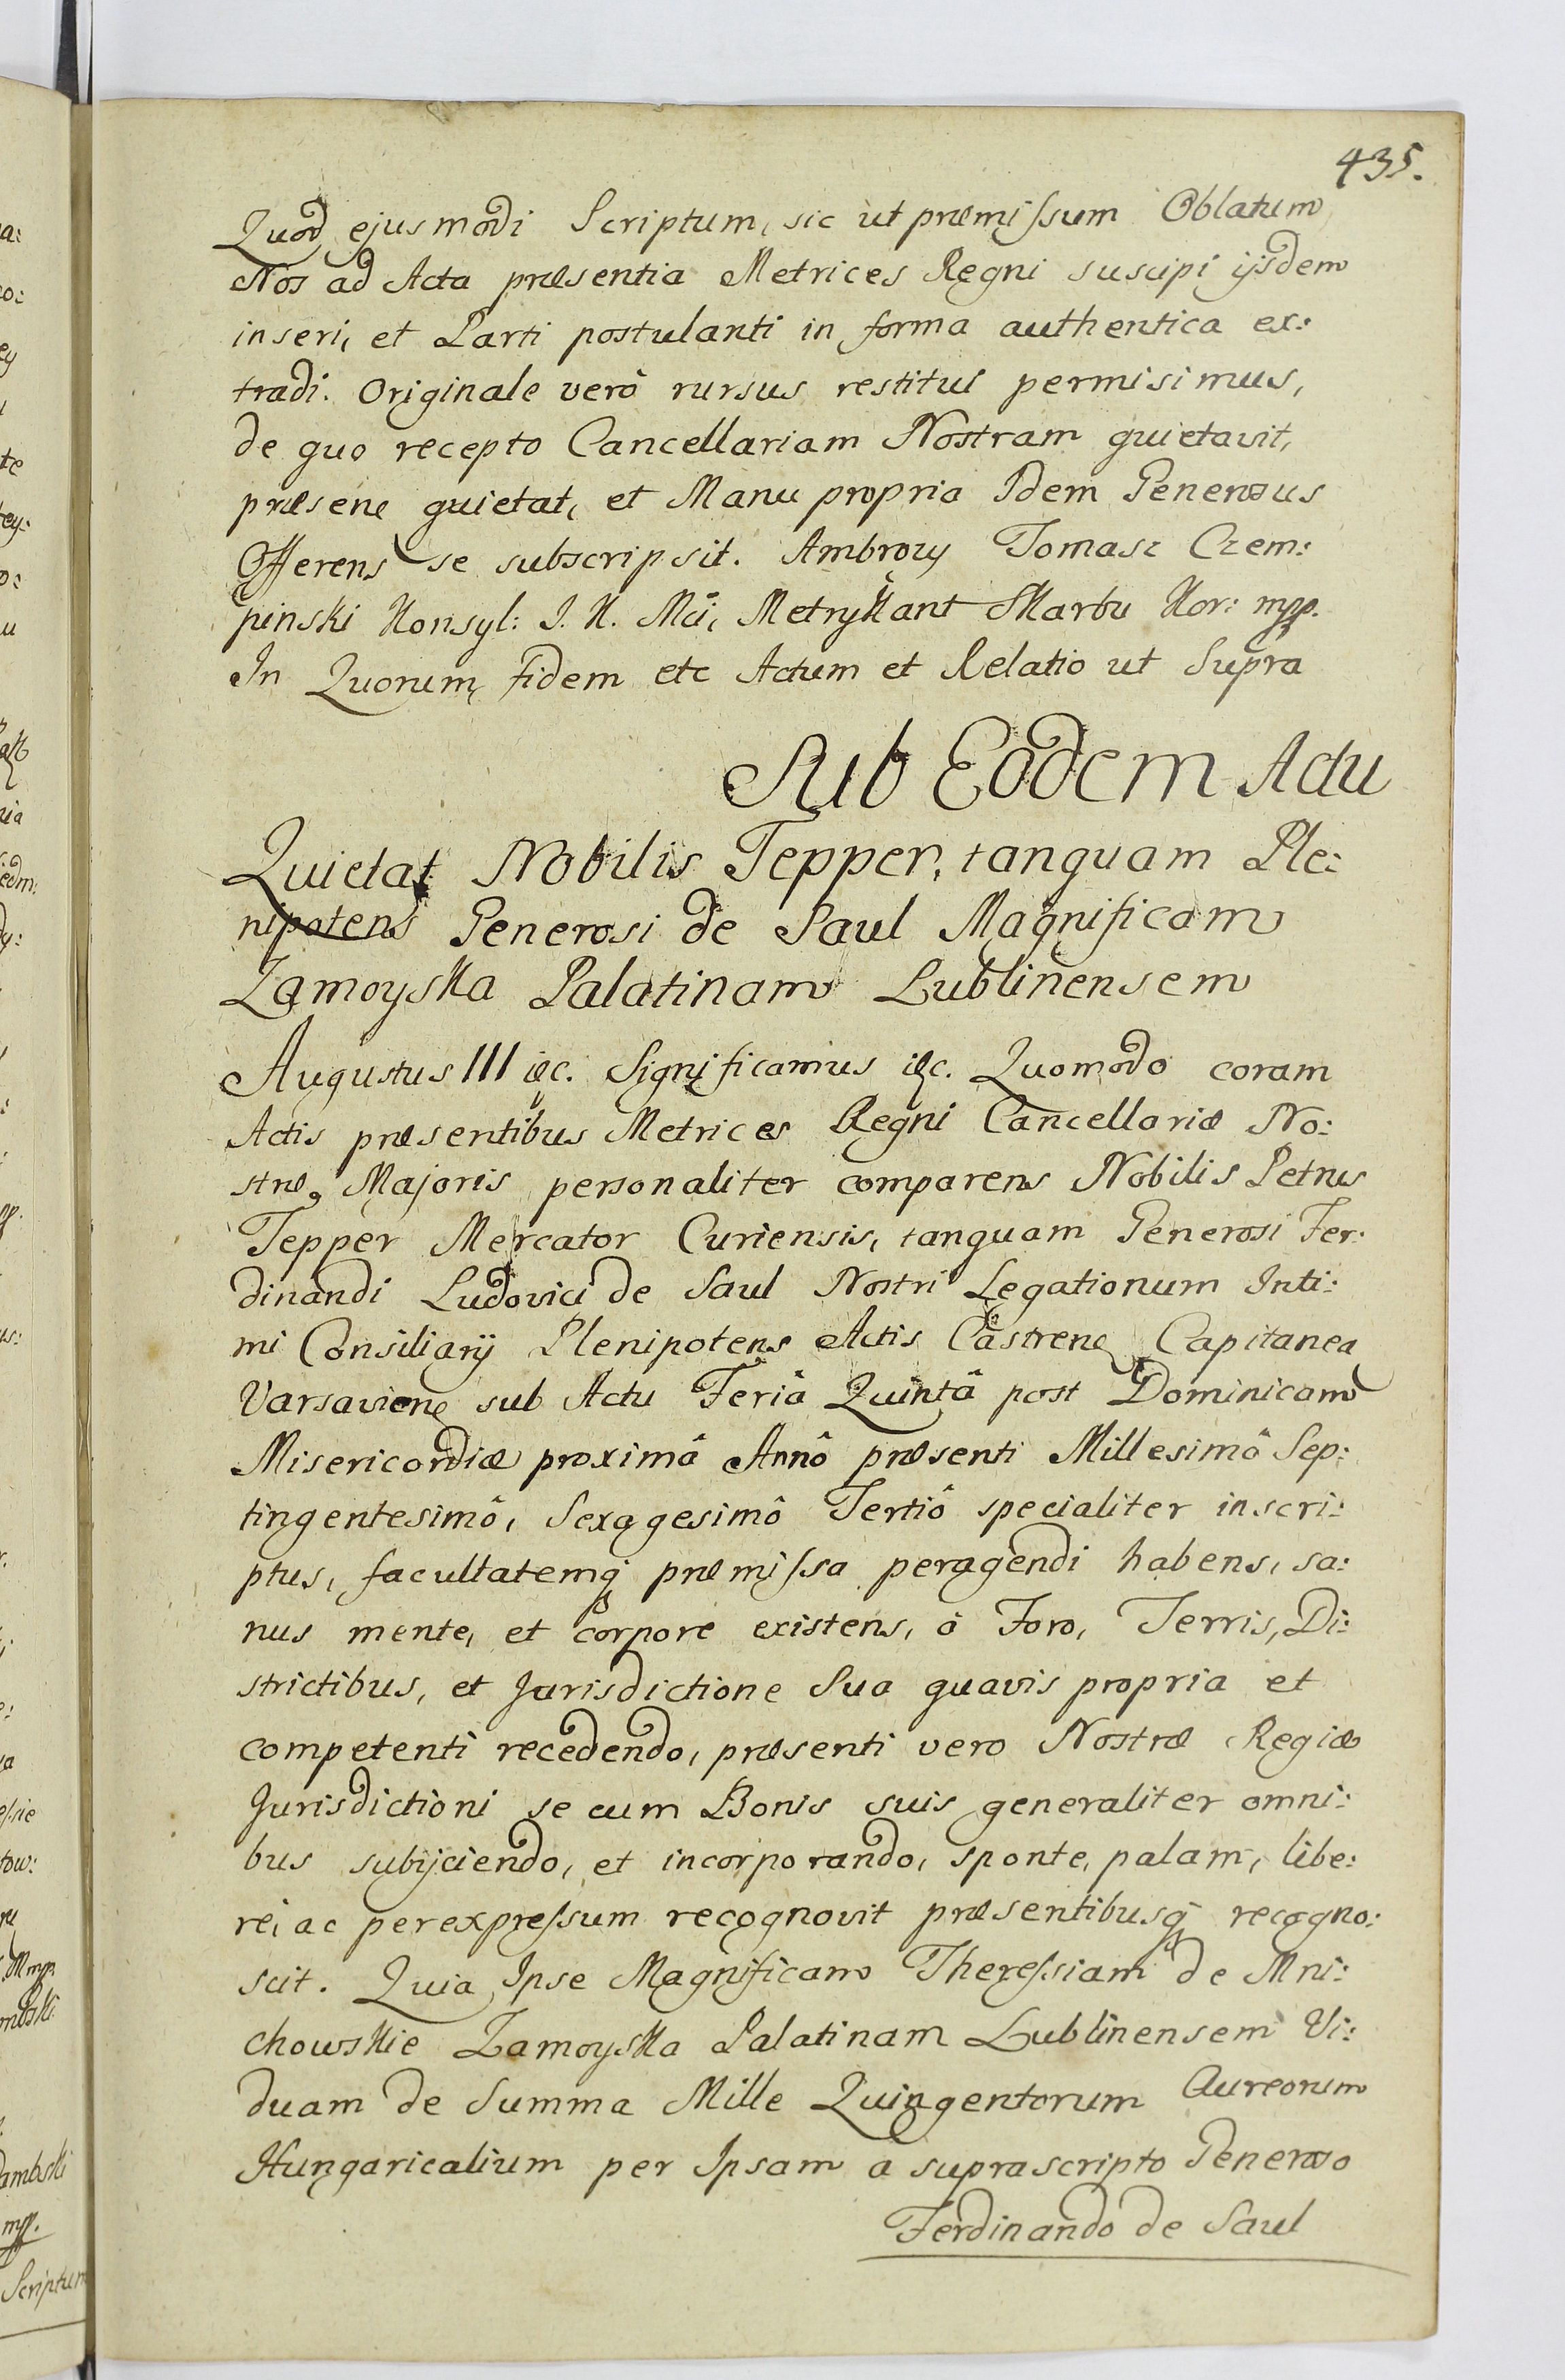 435.
Quod ejusmodi Scriptum, sic ut præmissum Oblatum
Nos ad Acta præsentia Metrices Regni suscipi ijsdem
inseri, et Parti postulanti in forma authentica ex:
tradi. Originale verô rursus restitui permisimus,
de quo recepto Cancellariam Nostram quietavit,
præsene quietat, et Manu propria Idem Generosus
Offerens se subscripsit. Ambroży Tomasz Czem:
pinski Konsyl: J. K. Mci, Metrykant Skarbu Kor: mpp.
In Quorum fidem etc Actum et Relatio ut Supra
Sub Eodem Actu
Quietat Nobilis Tepper, tanquam Ple:
nipotens Generosi de Saul Magnificam
Zamoyska Palatinam Lublinensem
Augustus III &c. Significamus &c. Quomodo coram
Actis præsentibus Metrices Regni Cancellariæ No:
stræ Majoris personaliter comparens Nobilis Petrus
Tepper Mercator Curiensis, tanquam Generosi Fer:
dinandi Ludovici de Saul Nostri Legationum Inti:
mi Consiliarij Plenipotens Actis Castrene Capitanea
Varsaviene sub Actu Feriâ Quintâ post Dominicam
Misericordiæ proximâ Annô præsenti Millesimô Sep:
tingentesimô, Sexagesimô Tertiô specialiter inscri:
ptus, facultatemq præmissa peragendi habens, sa:
nus mente, et corpore existens, â Foro, Terris, Di:
strictibus, et Jurisdictione Sua quavis propria et
competenti recedendo, præsenti vero Nostræ Regiæ
Jurisdictioni se cum Bonis suis generaliter omni:
bus subijciendo, et incorporando, sponte, palam, libe:
re, ac per expressum recognovit præsentibusq recogno:
scit. Quia Ipse Magnificam Theressiam de Mni:
chowskie Zamoyska Palatinam Lublinensem Vi:
duam de Summa Mille Quingentorum Aureorum
Hungaricalium per Ipsam a suprascripto Generoso
Ferdinando de Saul